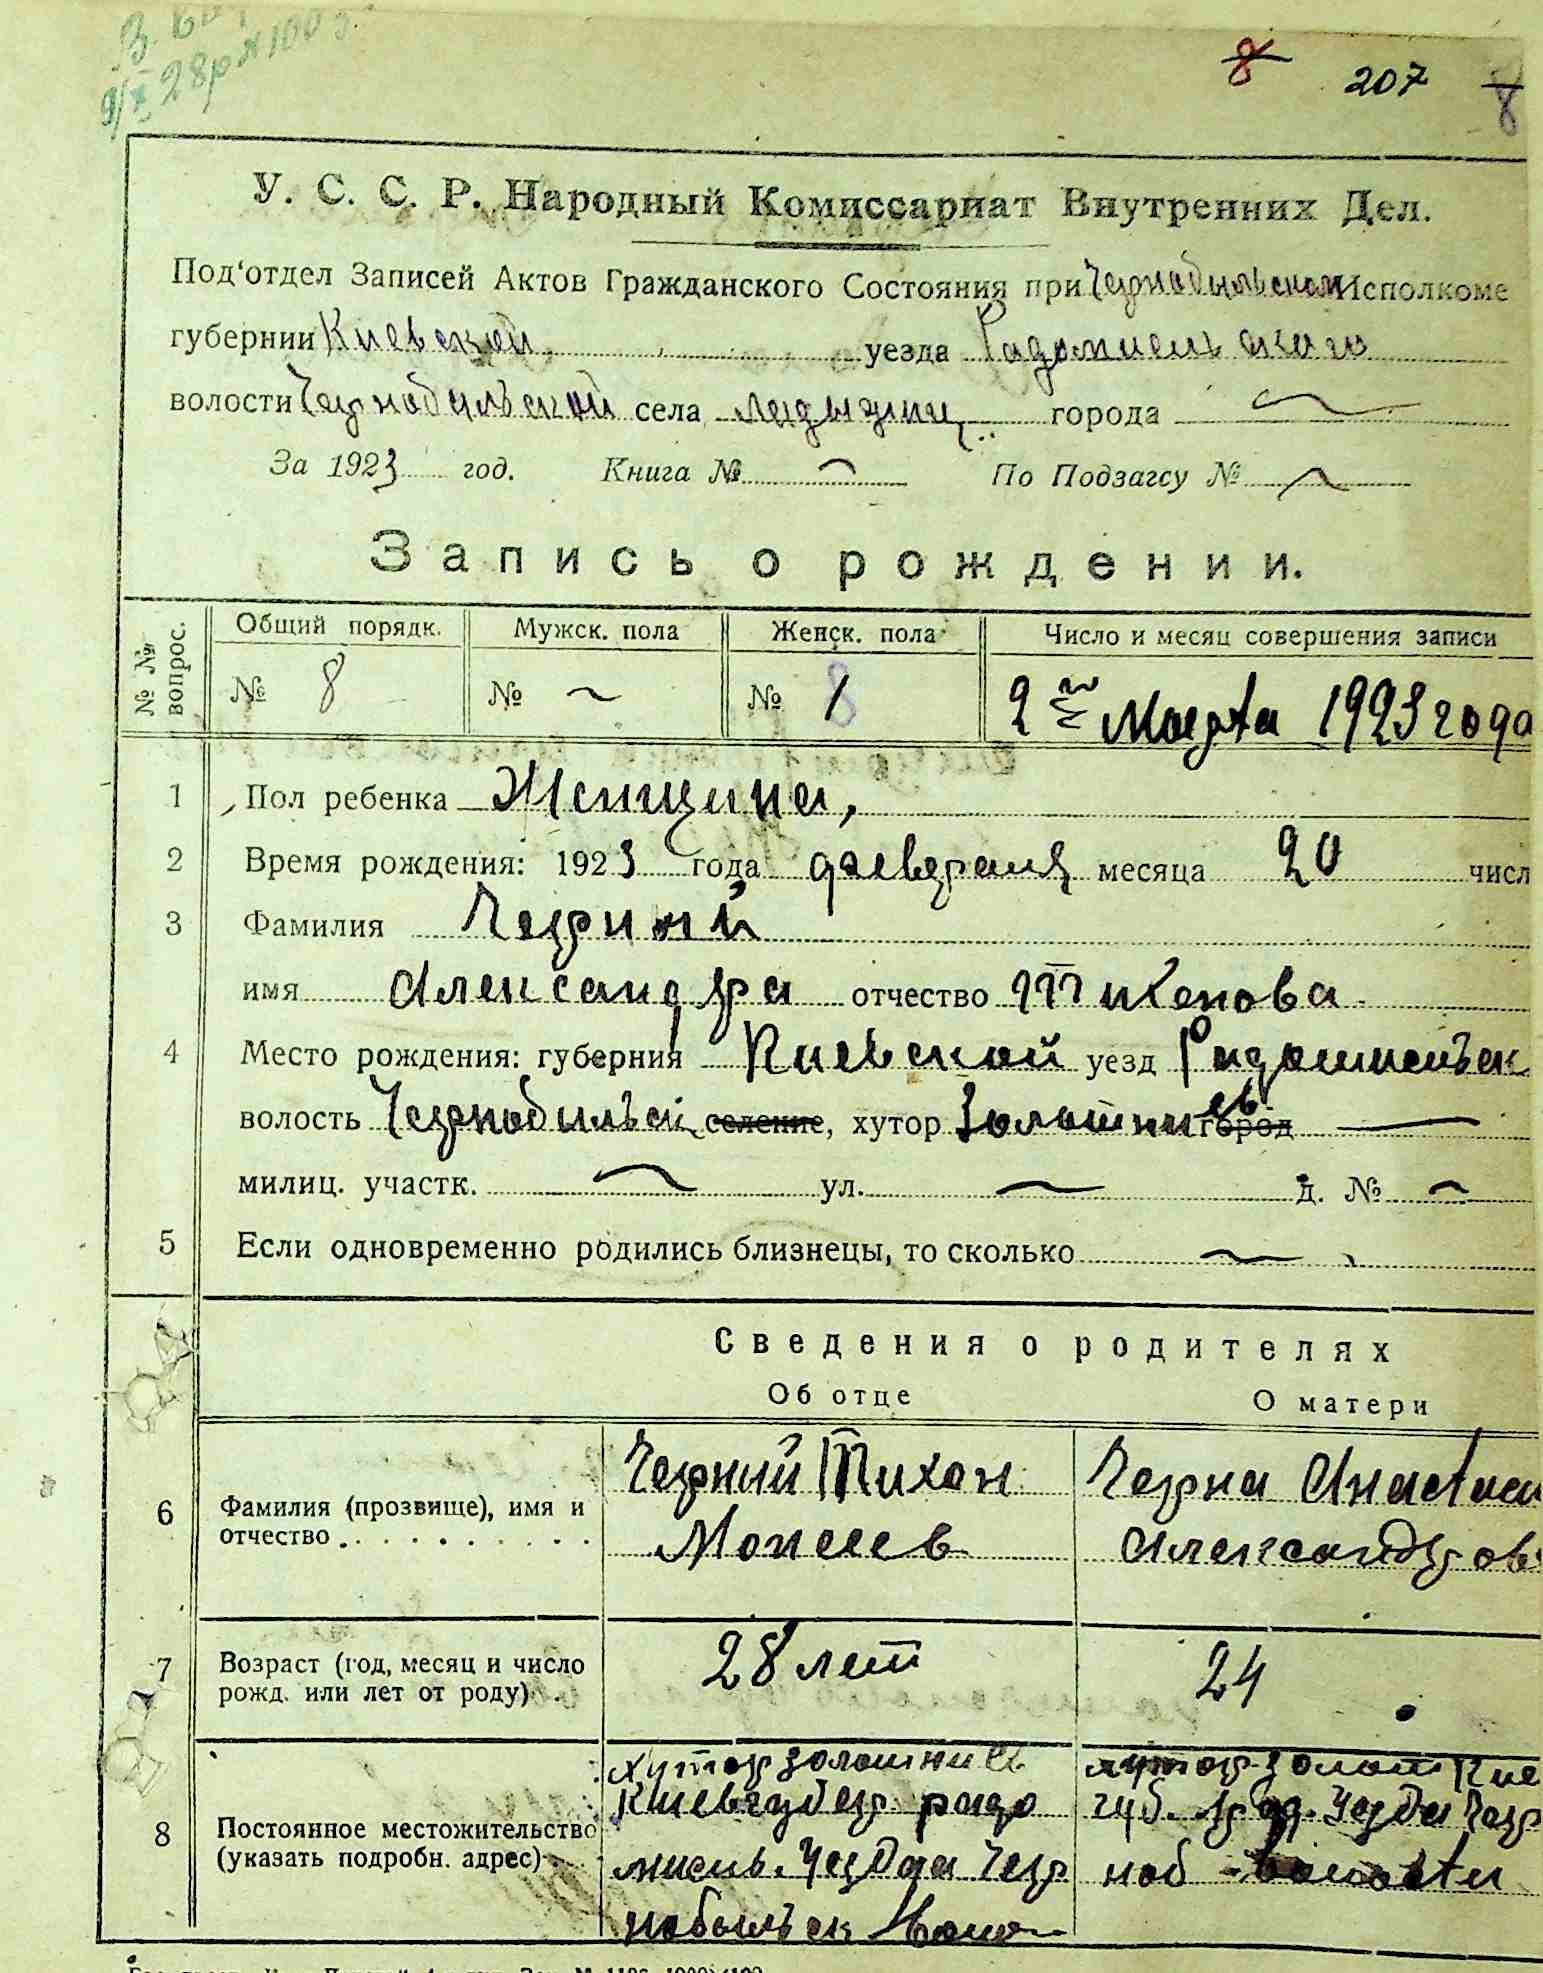 8 207 8
У. С. С. Р. Народный Комиссариат Внутренних Дел.
Под'отдел Записей Актов Гражданского Состояния при Чернобыльском Исполкоме
губернии Киевской уезда Радомисльского
волости Чернобыльской села города
За 1923 год. Книга № По Подзагсу №
Запись о рождении.
№ № вопрос. Общий порядк. Мужск. пола Женск. пола Число и месяц совершения записи
№ 8 № № 1 2го Марта 1923 года
1 Пол ребенка Женщина,
2 Время рождения: 1923 года февраля месяца 20 числ
3 Фамилия Черний
имя Александра отчество Тихонова
4 Место рождения: губерния Киевской уезд Радомисльск
волость Чернобильск селение, хутор Золотниев город
милиц. участк. ул. д. №
5 Если одновременно родились близнецы, то сколько
Сведения о родителях
Об отце О матери
6 Фамилия (прозвище), имя и отчество Черний Тихон Чорна Анастаси
Моисеев Александров
7 Возраст (год, месяц и число рожд. или лет от роду) 28 лет 24
8 Постоянное местожительство (указать подробн. адрес) хутор Золотниев хутор Золот Кие
Киев губер. радо губ. рад. Уезда Чер
мисль. Уезда Чер ноб волости
нобыльск Воло